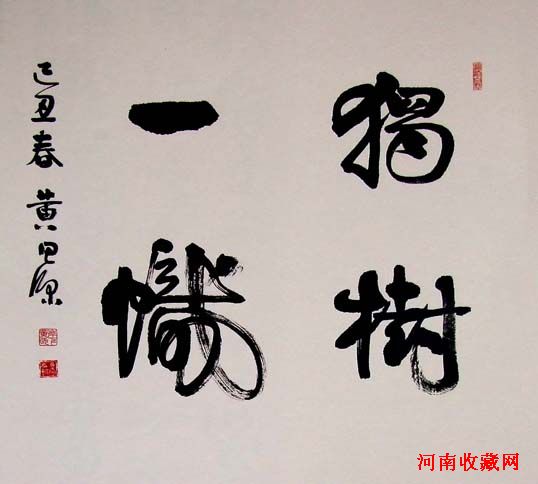 獨樹
一幟
己丑春 黄思源
河南收藏网